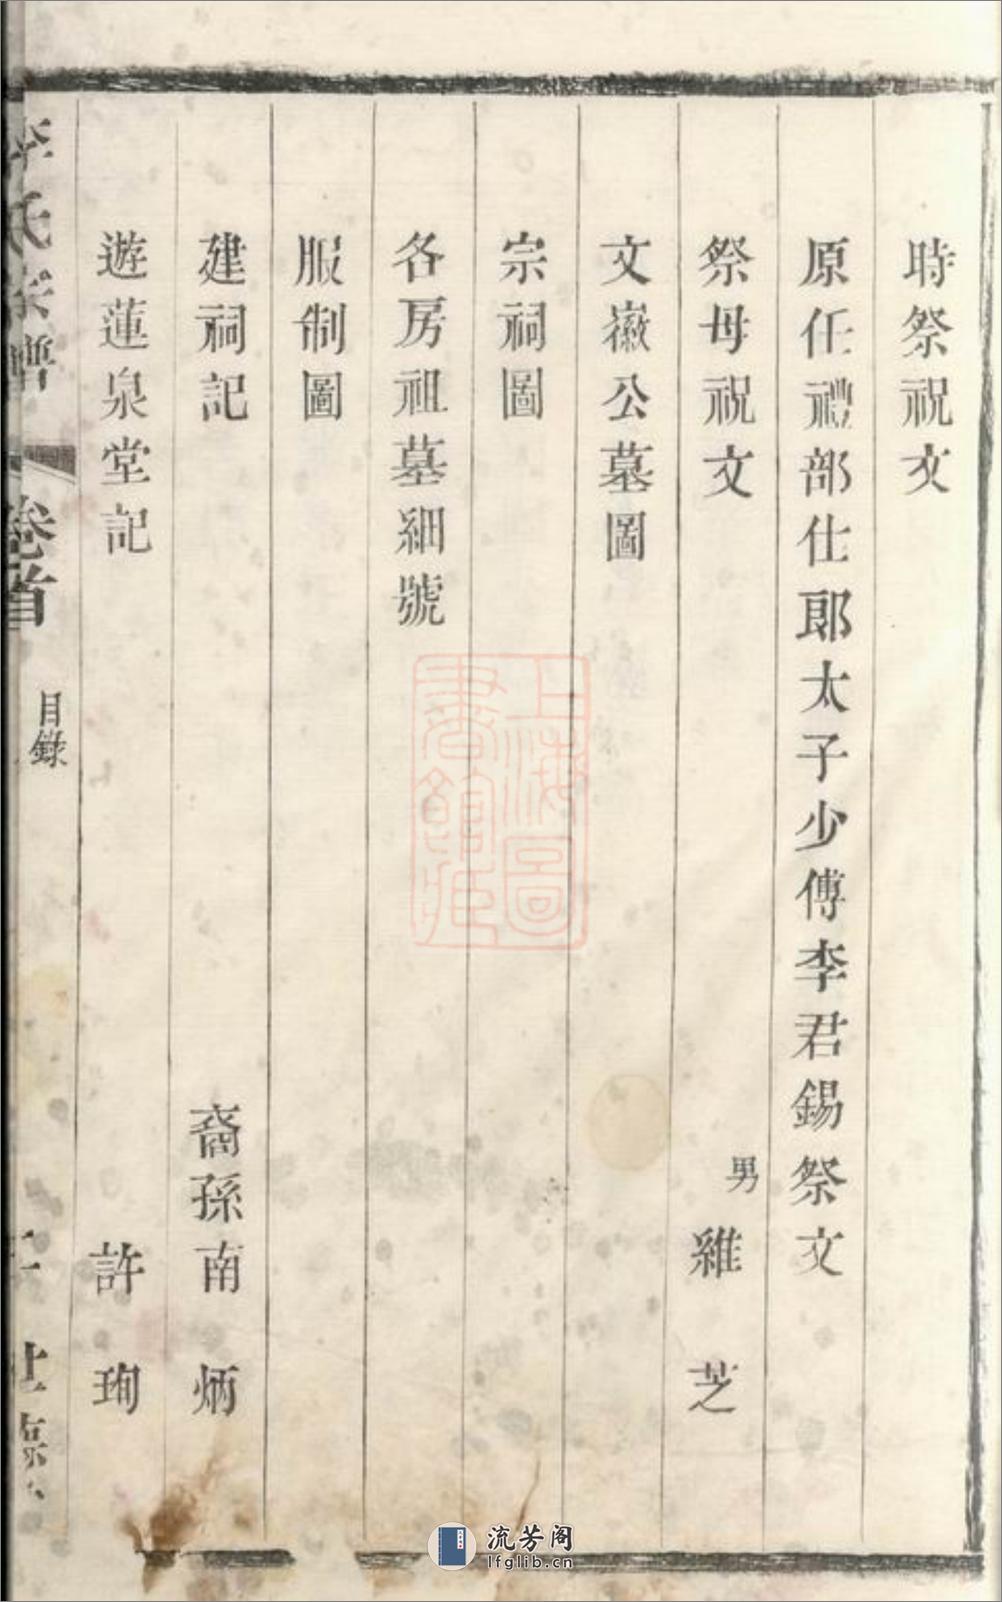 時祭祝文
原任禮部仕郎太子少傅李君錫祭文
祭母祝文 男 雞 芝
文嶽公墓圖
宗祠圖
各房祖墓細號
服制圖
建祠記 裔孫南 炳
遊蓮泉堂記 許 珣
李氏宗譜 卷首 目錄
上海圖書館藏
流芳阁
lfglib.cn